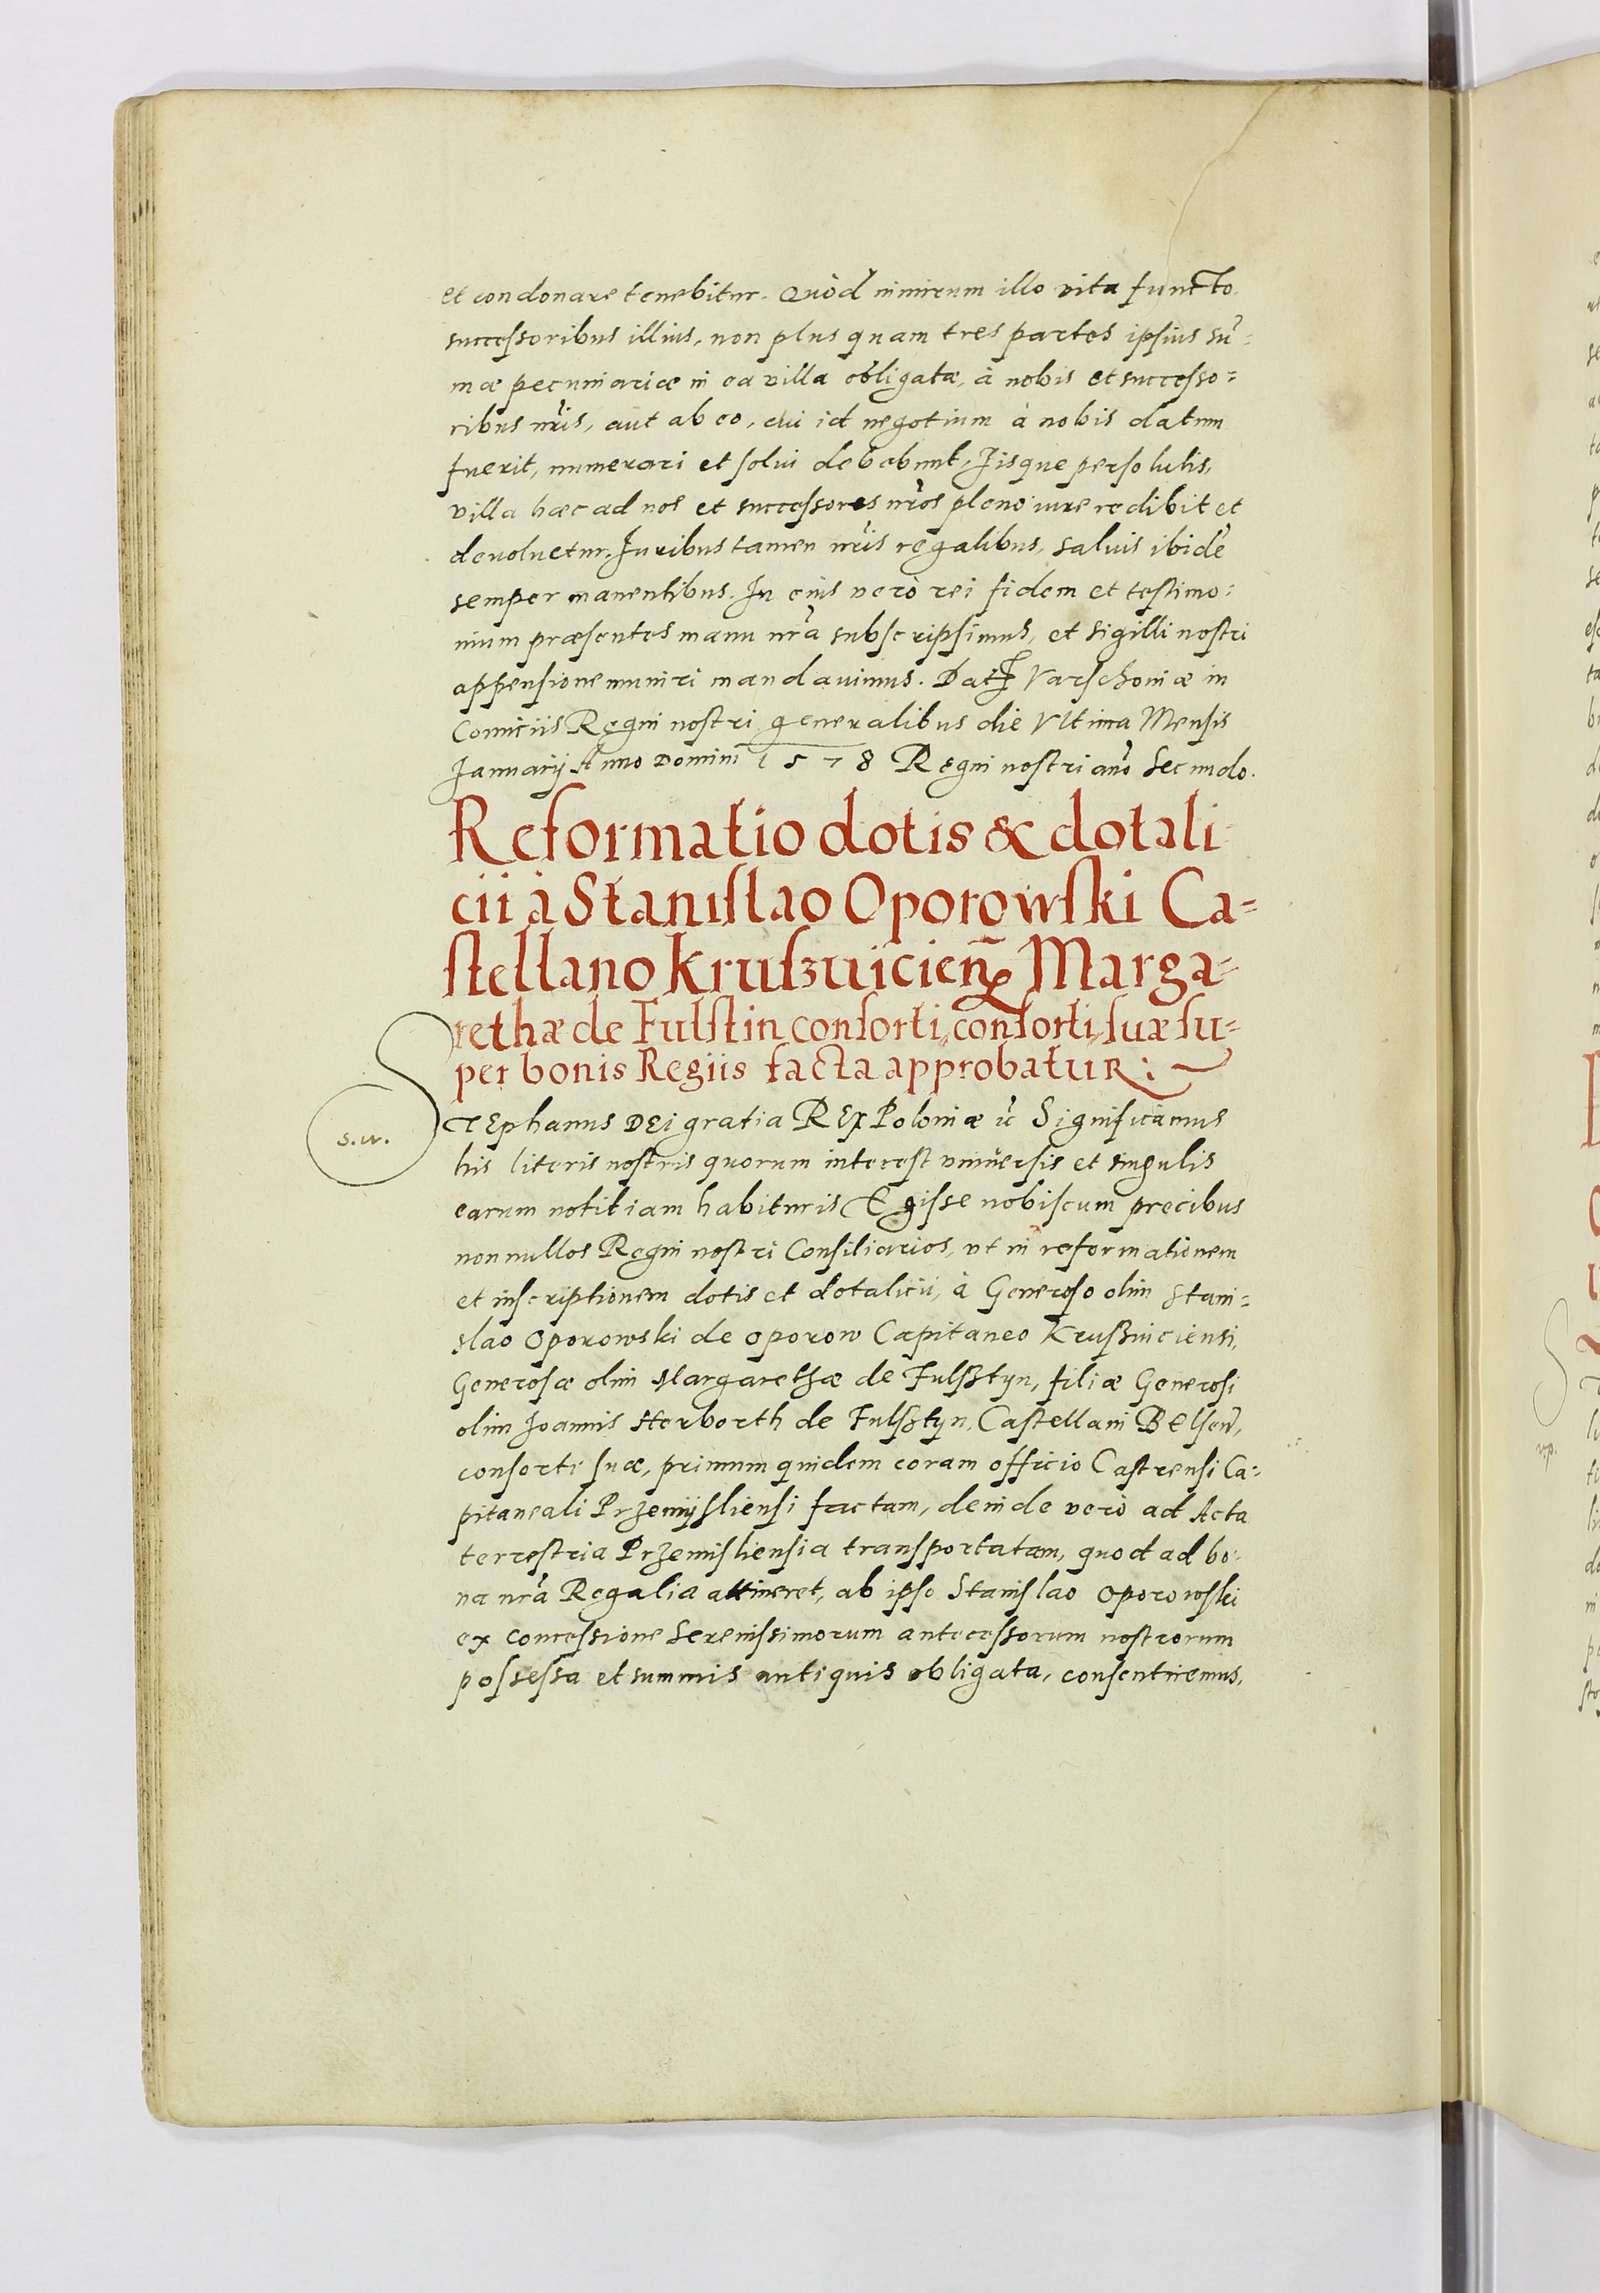 et condonare tenebitur. Quòd nimirum illo vita functo
successoribus illius, non plus quam tres partes ipsius sū=
mæ pecuniariæ in ea villa obligatæ, à nobis et successo=
ribus nr̃is, aut ab eo, cui id negotium à nobis datum
fuerit, numerari et solui debebunt, Iisque persolutis,
villa hæc ad nos et successores nr̃os pleno iure redibit et
deuoluetur. Iuribus tamen nr̃is regalibus, saluis ibidē
semper manentibus. In eius verò rei fidem et testimo=
nium præsentes manu nr̃a subscripsimus, et sigilli nostri
appensione muniri mandauimus. Dat Varschouiæ in
Comiciis Regni nostri generalibus die Vltima Mensis
Ianuarij Anno Domini 1578 Regni nostri año Secundo.
Reformatio dotis & dotali
cii à Stanislao Oporowski Ca=
stellano Kruszuicien̄ Marga=
rethæ de Fulstin consorti, consorti, suæ su=
per bonis Regiis facta approbatur:
STEphanus DEi gratia REx Poloniæ ꝛc̃ Significamus
s.w.
his literis nostris quorum interest vniuersis et singulis
earum notitiam habituris Egisse nobiscum precibus
nonnullos Regni nostri Consiliarios, vt in reformationem
et inscriptionem dotis et dotalicii, à Generoso olim Stani=
slao Oporowski de Oporow Capitaneo Krußuiciensi,
Generosæ olim Margarethæ de Fulsßtyn, filiæ Generosi
olim Ioannis Herborth de Fulsßtyn, Castellani Belsen̄,
consorti suæ, primum quidem coram officio Castrensi Ca=
pitaneali Przemijsliensi factam, deinde verò ad Acta
terrestria Przemisliensia transportatam, quod ad bo=
na nr̃a Regalia attineret, ab ipso Stanislao Oporowski
ex concessione Serenissimorum antecessorum nostrorum
possessa et summis antiquis obligata, consentiremus,